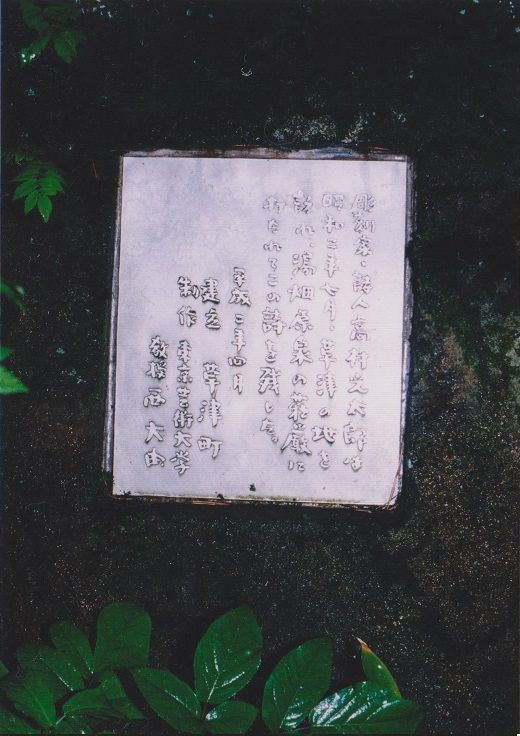 彫刻家・詩人高村光太郎は
昭和二年七月、草津の地を
訪れ、湯畑源泉の荘厳に
打たれてこの詩を残した。
平成二年四月
建立 草津町
制作 東京芸術大学
教授 西大由